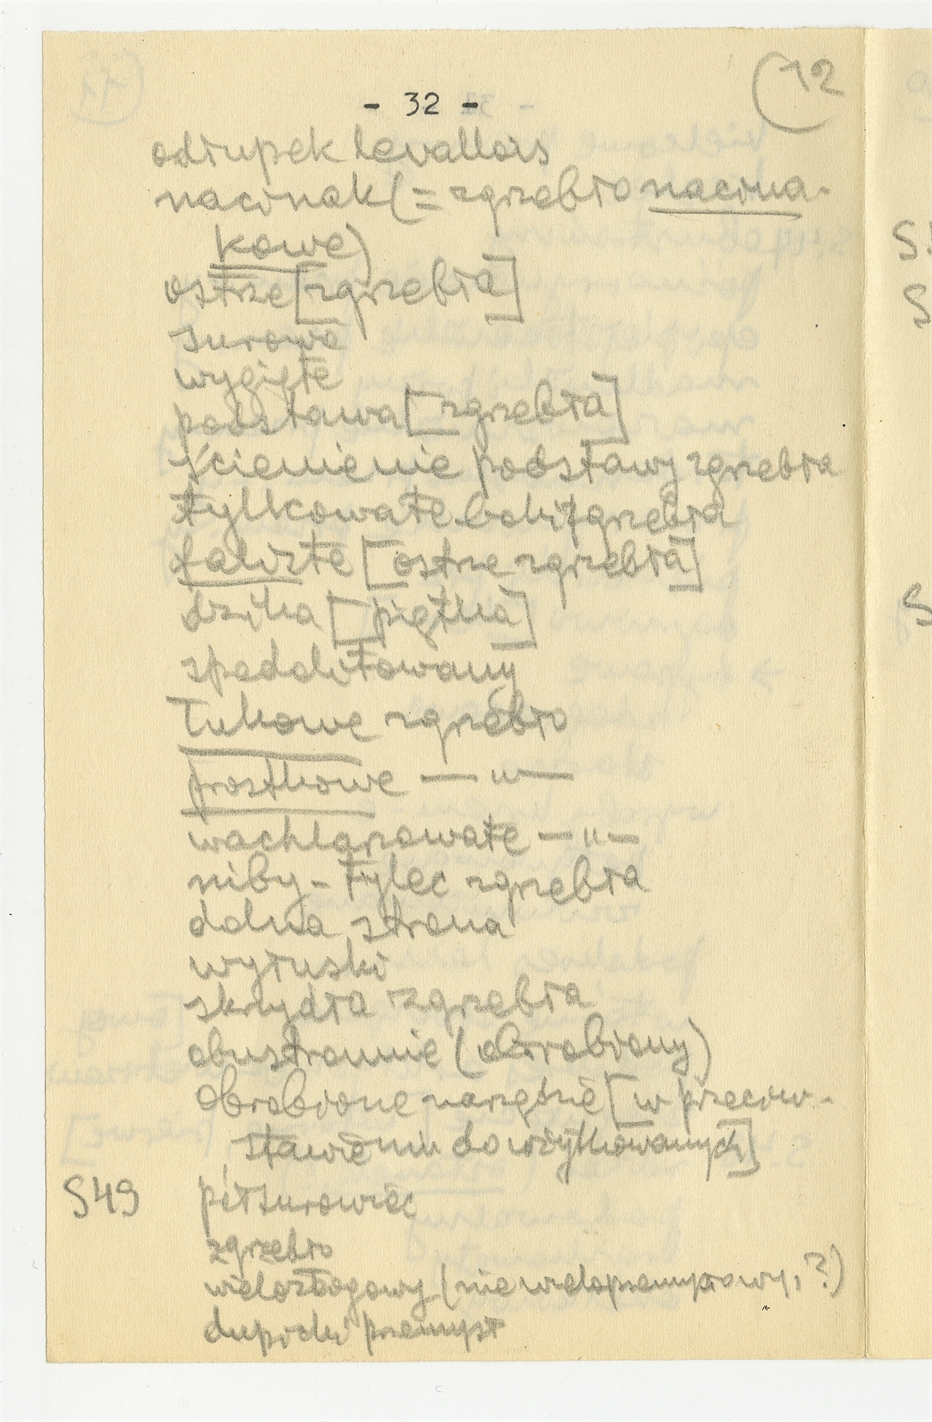 (12
- 32 -
odłupek levallois
nacinak (= zgrzebło nacina-
kowe)
ostrze [zgrzebła]
surowe
wygięte
podstawa [zgrzebła]
ścienienie podstawy zgrzebła
tylkowate boki zgrzebła
faliste [ostrze zgrzebła]
dzika [piętka]
łukowe zgrzebło
prostkowe —„—
wachlarzowate —„—
niby-tylec zgrzebła
dolna strona
wyłuski
skrzydła zgrzebła
obustronnie (obrobiony)
obrobione narzędzie [w przeciw-
stawieniu do użytkowanych]
S49 półsurowiec
zgrzebło
wielozłogowy (nie wieloprzemysłowy, ?)
przemysł